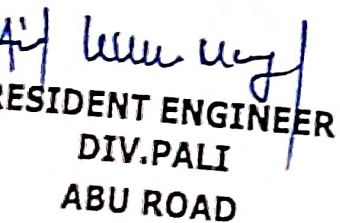 RESIDENT ENGINEER
DIV.PALI
ABU ROAD